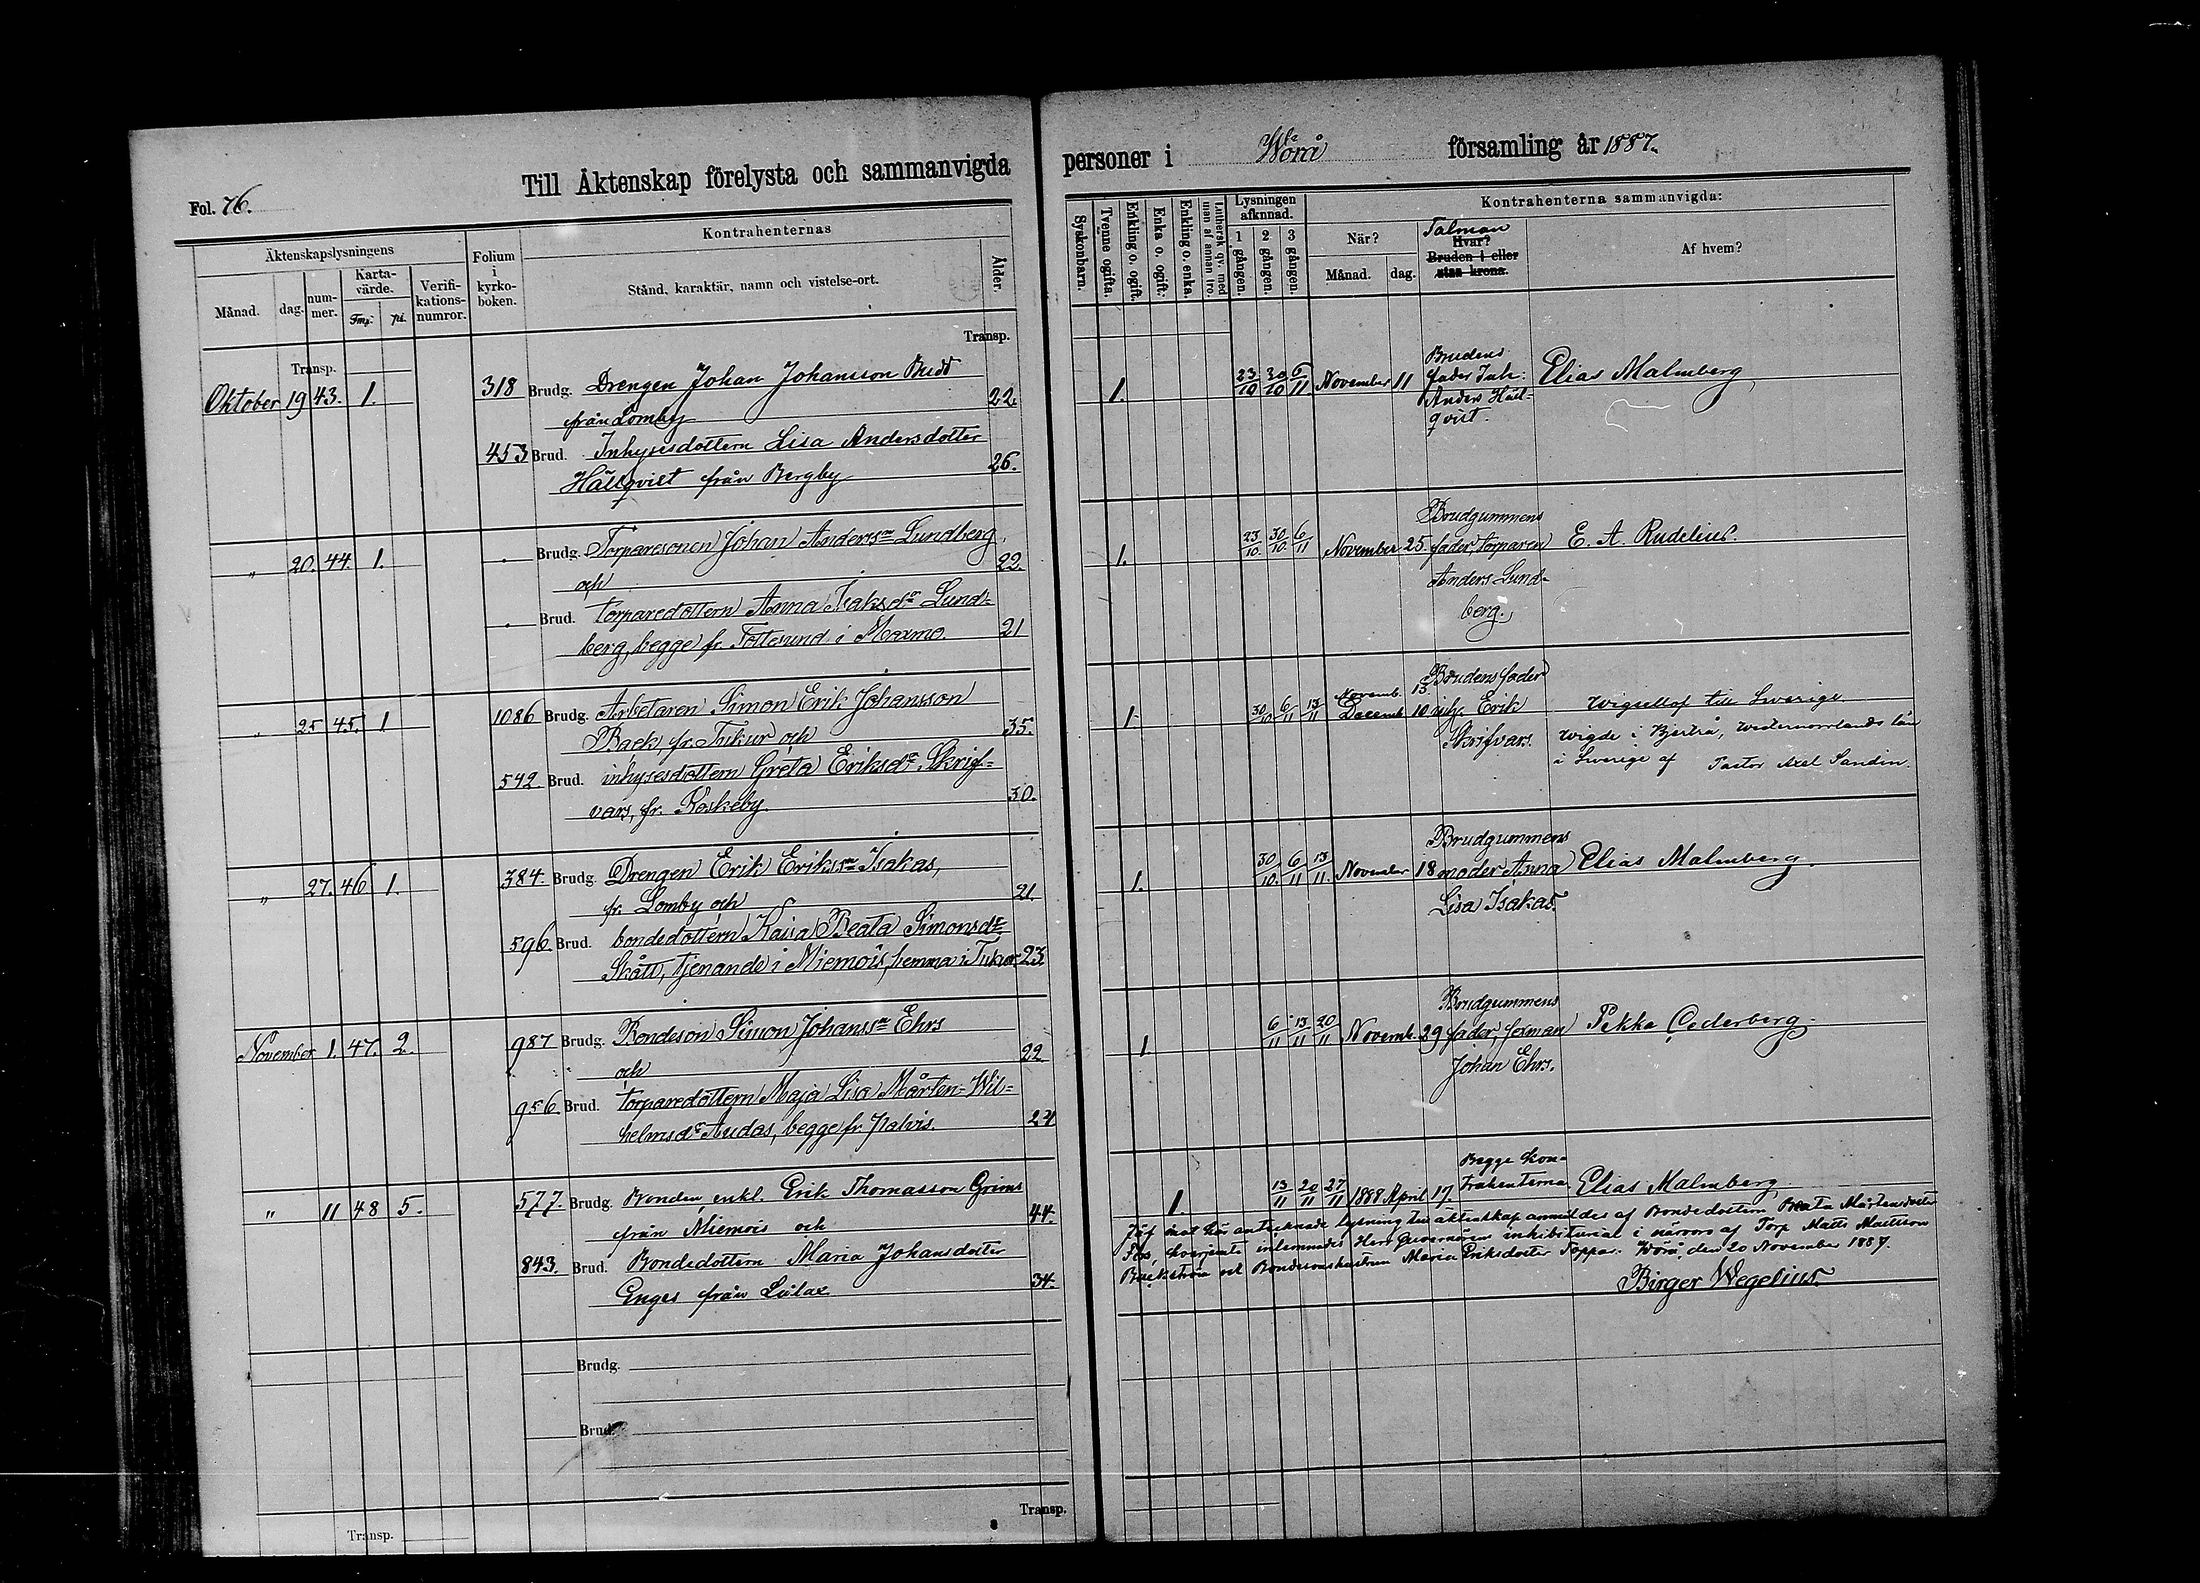 Till Äktenskap förelysta och sammanvigda
personer i Wörå församling år 1887.
Fol. 76.
Äktenskapslysningens
Månad.
dag.
num-
mer.
Karta-
värde.
Fmk.
pi.
Verifi-
kations-
numror.
Folium
i
kyrko-
boken.
Kontrahenternas
Stånd, karaktär, namn och vistelse-ort.
Ålder.
Syskonbarn.
Tvenne ogifta.
Enkling o. ogift.
Enka o. ogift.
Enkling o. enka.
Luthersk qv. med
man af annan tro.
Lysningen
afkunnad.
1 gången.
2 gången.
3 gången.
Kontrahenterna sammanvigda:
När?
Månad.
dag.
Talman
Hvar?
Bruden i eller
utan krona.
Af hvem?
Transp.
Transp.
Oktober 19 43. 1. 318 Brudg. Drengen Johan Johansson Budd
från Lomby 22.
453 Brud. Inhysesdottern Lisa Andersdotter
Hällqvist från Bergby 26.
1. 23/10 30/10 6/11 November 11
Brudens
fader Inh:
Anders Häll-
qvist.
Elias Malmberg
" 20. 44. 1. Brudg. Torparesonen Johan Anderssn Lundberg,
och 22.
Brud. torparedottern Anna Isaksdr Lund-
berg, begge fr. Tottesund i Maxmo. 21
1. 23/10. 30/10. 6/11 November 25
Brudgummens
fader, torparen
Anders Lund-
berg.
E. A. Rudelius.
" 25 45. 1 1086 Brudg. Arbetaren Simon Erik Johansson
Back, fr. Tukur och 35.
542. Brud. inhysesdottern Greta Eriksdr Skrif-
vars, fr. Röskeby. 30.
1. 30/10 6/11 13/11 Novemb. 13.
Decemb. 10
Brudens fader
inhs. Erik
Skrifvars.
Vigsellof till Sverige
Vigde i Bjertrå, Westernorrlands län
i Sverige af Pastor Axel Sandin.
" 27. 46 1. 384. Brudg. Drengen Erik Erikssn Isakas,
fr. Lomby och 21.
596. Brud. bondedottern Kaisa Beata Simonsdr
Skått, tjenande i Miemois, hemma i Tukur. 23
1. 30/10. 6/11 13/11. November 18
Brudgummens
moder Anna
Lisa Isakas.
Elias Malmberg.
November 1. 47. 2. 987 Brudg. Bondeson Simon Johanssn Ehrs
och 22
956 Brud. torparedottern Maja Lisa Mårten-Wil-
helmsdr Audas, begge fr. Palvis. 24
1. 6/11 13/11 20/11 Novemb. 29
Brudgummens
fader, fexman
Johan Ehrs.
Pekka Cederberg.
" 11 48 5. 577. Brudg. Bonden, enkl. Erik Thomasson Grims
från Miemois och 44.
843. Brud. Bondedottern Maria Johansdotter
Enges från Lålax 34.
1. 13/11 20/11 27/11 1888 April 17.
Begge kon-
trahenterna
Elias Malmberg
Jäf mot här antecknade lysning till äktenskap anmäldes af Bondedottern Beata Mårtensdotter
hvarjemte inlemnades Herr Guvernörens inhibitorial i närvaro af Torp Matts Mattsson
Backström och Bondesonshustrun Maria Eriksdotter Toppar. Wörå, den 20 November 1887.
Birger Wegelius.
Brudg.
Brud.
Transp.
Transp.